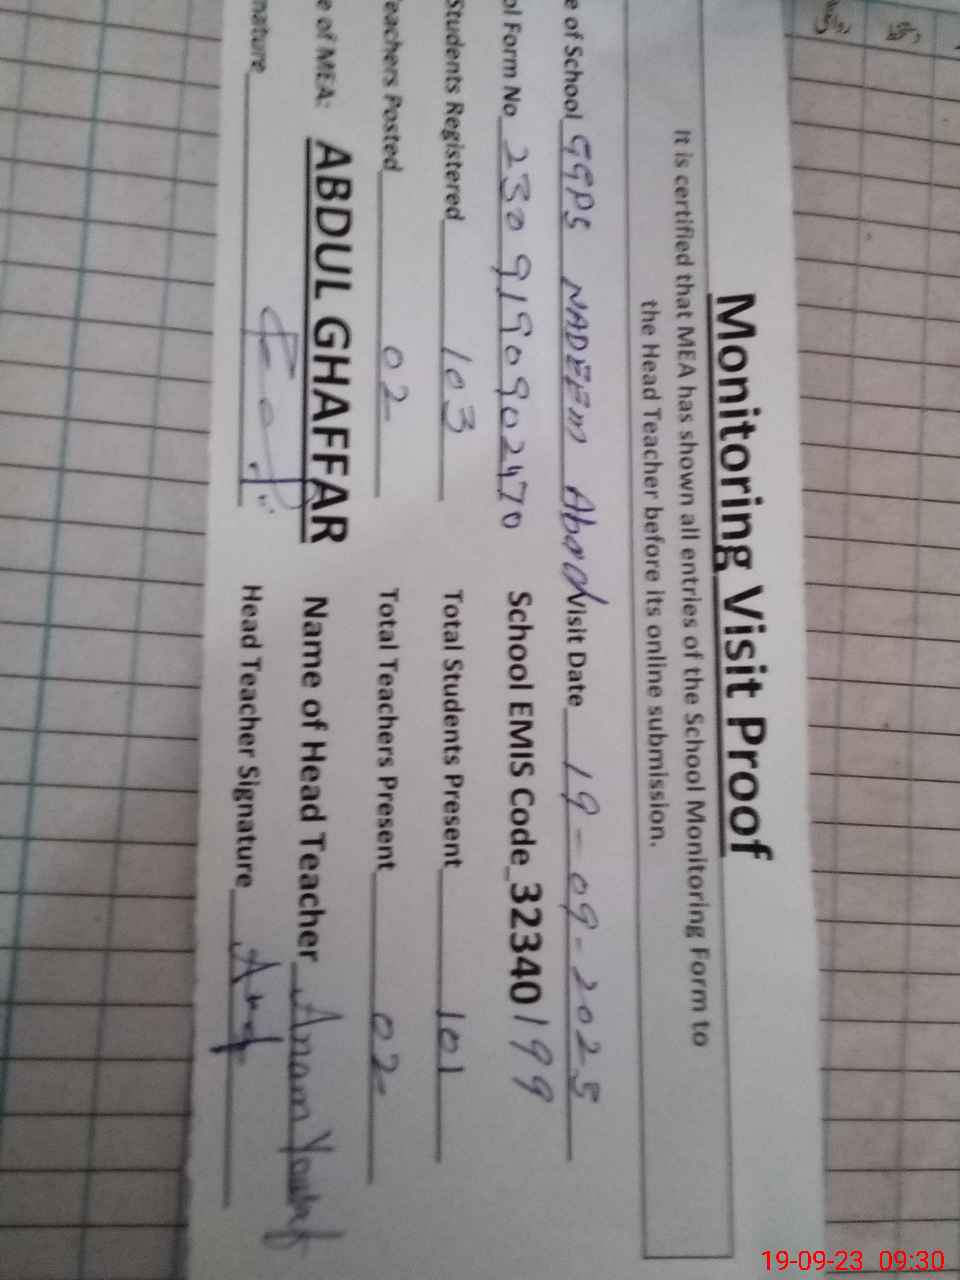 Monitoring Visit Proof
It is certified that MEA has shown all entries of the School Monitoring Form to
the Head Teacher before its online submission.
e of School GGPS NADEEM Abad Visit Date 19-09-2025
ol Form No 230919090902470 School EMIS Code 32340199
Students Registered 103 Total Students Present 101
eachers Posted 02 Total Teachers Present 02
e of MEA: ABDUL GHAFFAR Name of Head Teacher Anam Yousaf
nature Head Teacher Signature
19-09-23 09:30